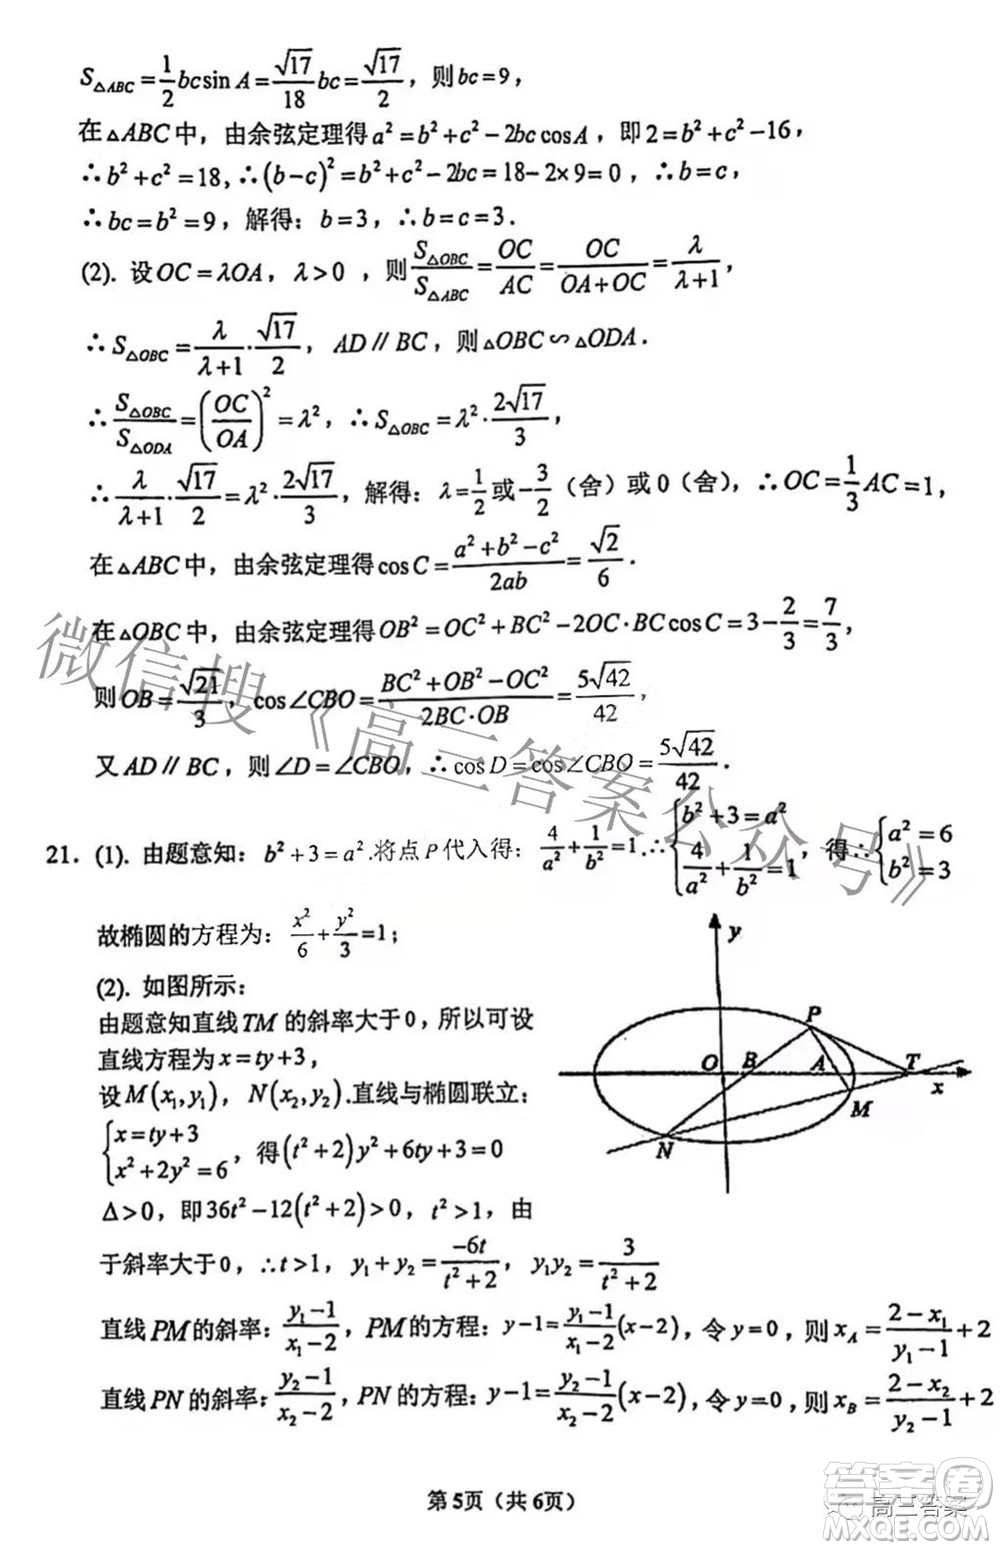 S△ABC = 1/2 bc sin A = √17/18 bc = √17/2，则bc=9，
在△ABC中，由余弦定理得a²=b²+c²-2bc cosA，即2=b²+c²-16，
∴b²+c²=18,∴(b-c)²=b²+c²-2bc=18-2×9=0，∴b=c，
∴bc=b²=9，解得：b=3，∴b=c=3．
(2). 设OC=λOA，λ>0 ，则S△OBC/S△ABC = OC/AC = OC/(OA+OC) = λ/(λ+1)，
∴S△OBC = λ/(λ+1)·√17/2，AD∥BC，则△OBC∽△ODA．
∴S△OBC/S△ODA = (OC/OA)² = λ²，∴S△OBC = λ²·2√17/3，
∴λ/(λ+1)·√17/2 = λ²·2√17/3，解得：λ=1/2或-3/2（舍）或0（舍），∴OC=1/3 AC=1，
在△ABC中，由余弦定理得cosC = (a²+b²-c²)/2ab = √2/6．
在△OBC中，由余弦定理得OB²=OC²+BC²-2OC·BC cosC=3-2/3=7/3，
则OB=√21/3，cos∠CBO = (BC²+OB²-OC²)/(2BC·OB) = 5√42/42，
又AD∥BC，则∠D=∠CBO，∴cosD=cos∠CBO=5√42/42．
21．(1). 由题意知：b²+3=a².将点P代入得：4/a²+1/b²=1.∴{b²+3=a², 4/a²+1/b²=1，得∴{a²=6, b²=3
故椭圆的方程为：x²/6+y²/3=1；
(2). 如图所示：
由题意知直线TM的斜率大于0，所以可设
直线方程为x=ty+3，
设M(x₁,y₁)，N(x₂,y₂).直线与椭圆联立：
{x=ty+3, x²+2y²=6，得(t²+2)y²+6ty+3=0
Δ>0，即36t²-12(t²+2)>0，t²>1，由
于斜率大于0，∴t>1，y₁+y₂=-6t/(t²+2)，y₁y₂=3/(t²+2)
直线PM的斜率：(y₁-1)/(x₁-2)，PM的方程：y-1=(y₁-1)/(x₁-2)(x-2)，令y=0，则x_A=(2-x₁)/(y₁-1)+2
直线PN的斜率：(y₂-1)/(x₂-2)，PN的方程：y-1=(y₂-1)/(x₂-2)(x-2)，令y=0，则x_B=(2-x₂)/(y₂-1)+2
y
P
O
B
A
T
x
M
N
第5页（共6页）
微信搜《高三答案公众号》
高三答案
答案圈
MXQE.COM